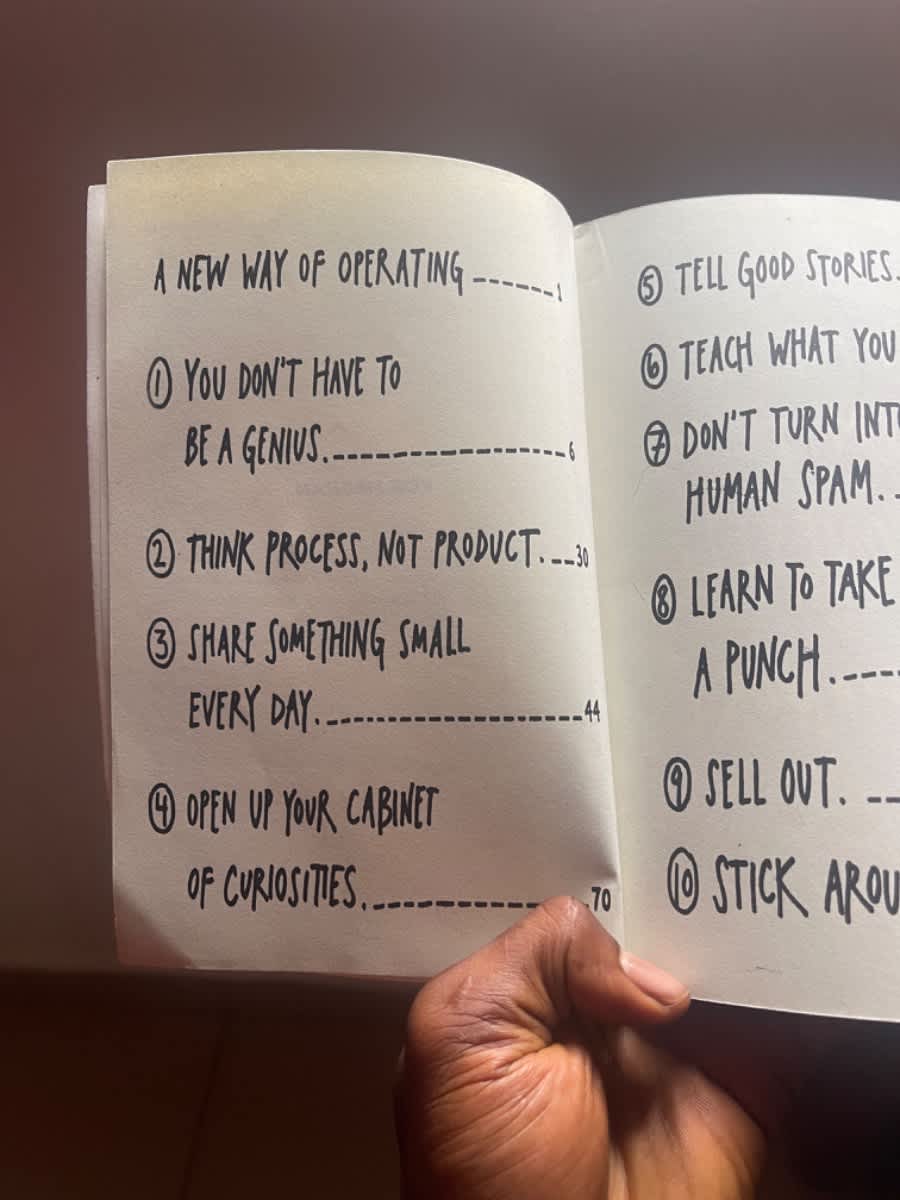 A NEW WAY OF OPERATING ------1
① YOU DON'T HAVE TO
BE A GENIUS. ------------------6
② THINK PROCESS, NOT PRODUCT. ---30
③ SHARE SOMETHING SMALL
EVERY DAY. ---------------------44
④ OPEN UP YOUR CABINET
OF CURIOSITIES. ----------------70
⑤ TELL GOOD STORIES.
⑥ TEACH WHAT YOU
⑦ DON'T TURN INTO
HUMAN SPAM. -
⑧ LEARN TO TAKE
A PUNCH. ----
⑨ SELL OUT. --
⑩ STICK AROU